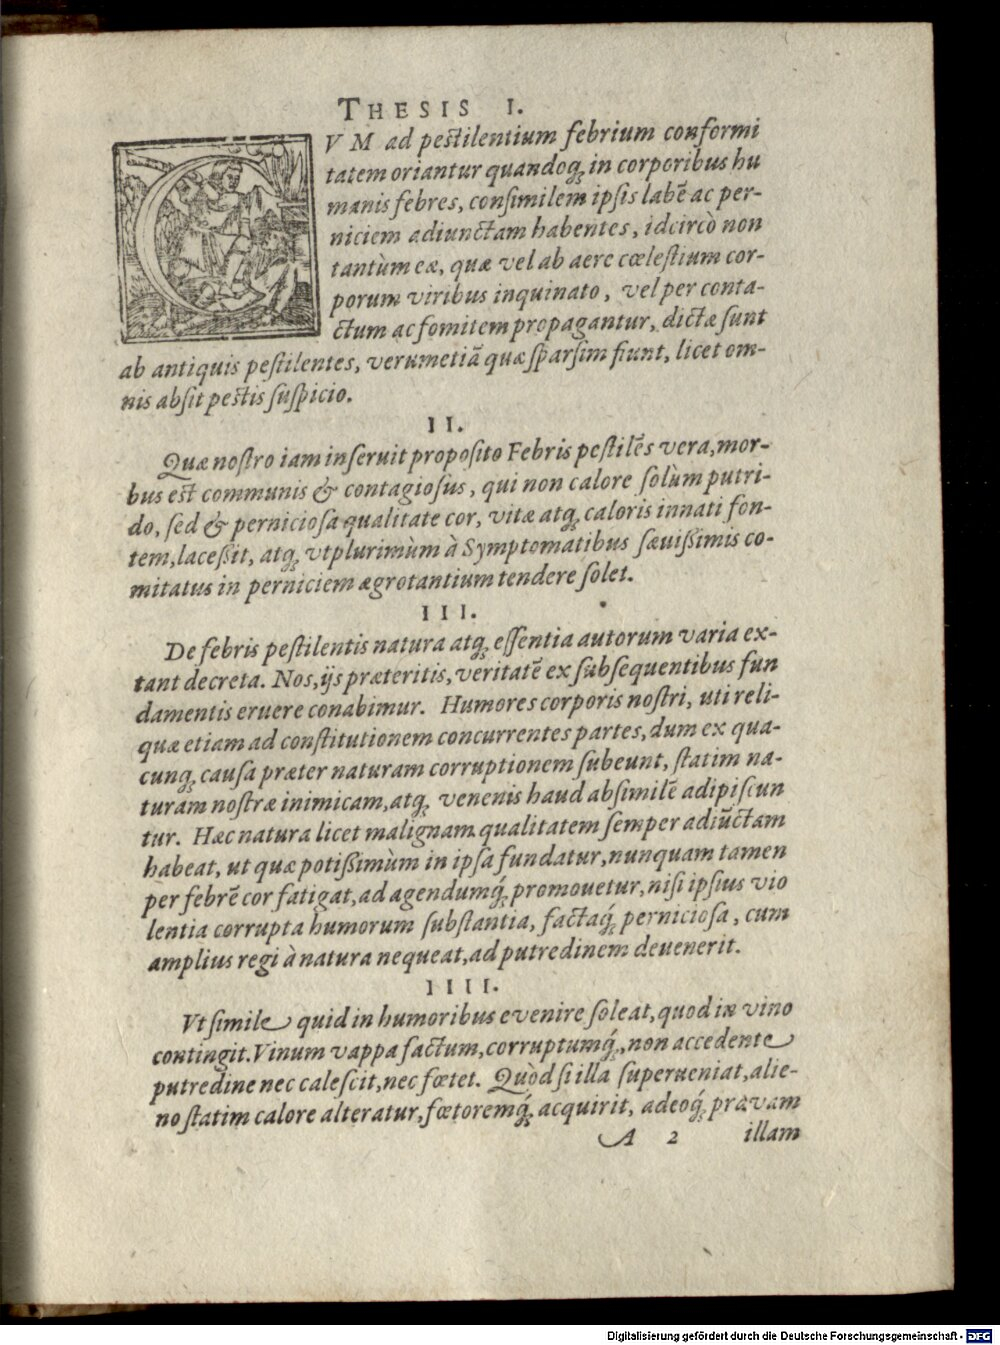 THESIS I.
CVM ad pestilentium febrium conformi
tatem oriantur quandoq́; in corporibus hu
manis febres, consimilem ipsis labẽ ac per-
niciem adiunctam habentes, idcircò non
tantùm eæ, quæ vel ab aere cœlestium cor-
porum viribus inquinato, vel per conta-
ctum ac fomitem propagantur, dictæ sunt
ab antiquis pestilentes, verumetiã quæ sparsim fiunt, licet om-
nis absit pestis suspicio.
II.
Quæ nostro iam inseruit proposito Febris pestilẽs vera, mor-
bus est communis & contagiosus, qui non calore solùm putri-
do, sed & perniciosa qualitate cor, vitæ atq; caloris innati fon-
tem, lacessit, atq; vtplurimùm à Symptomatibus sæuißimis co-
mitatus in perniciem ægrotantium tendere solet.
III.
De febris pestilentis natura atq; essentia autorum varia ex-
tant decreta. Nos, ijs præteritis, veritatẽ ex subsequentibus fun
damentis eruere conabimur. Humores corporis nostri, uti reli-
quæ etiam ad constitutionem concurrentes partes, dum ex qua-
cunq; causa præter naturam corruptionem subeunt, statim na-
turam nostræ inimicam, atq; venenis haud absimilẽ adipiscun
tur. Hæc natura licet malignam qualitatem semper adiũctam
habeat, ut quæ potißimùm in ipsa fundatur, nunquam tamen
per febrẽ cor fatigat, ad agendumq́; promouetur, nisi ipsius vio
lentia corrupta humorum substantia, factaq́; perniciosa, cum
amplius regi à natura nequeat, ad putredinem deuenerit.
IIII.
Vt simile quid in humoribus evenire soleat, quod in vino
contingit. Vinum vappa factum, corruptumq́;, non accedente
putredine nec calescit, nec fœtet. Quòd si illa superueniat, alie-
no statim calore alteratur, fœtoremq́; acquirit, adeoq́; pravam
A 2 illam
Digitalisierung gefördert durch die Deutsche Forschungsgemeinschaft - DFG